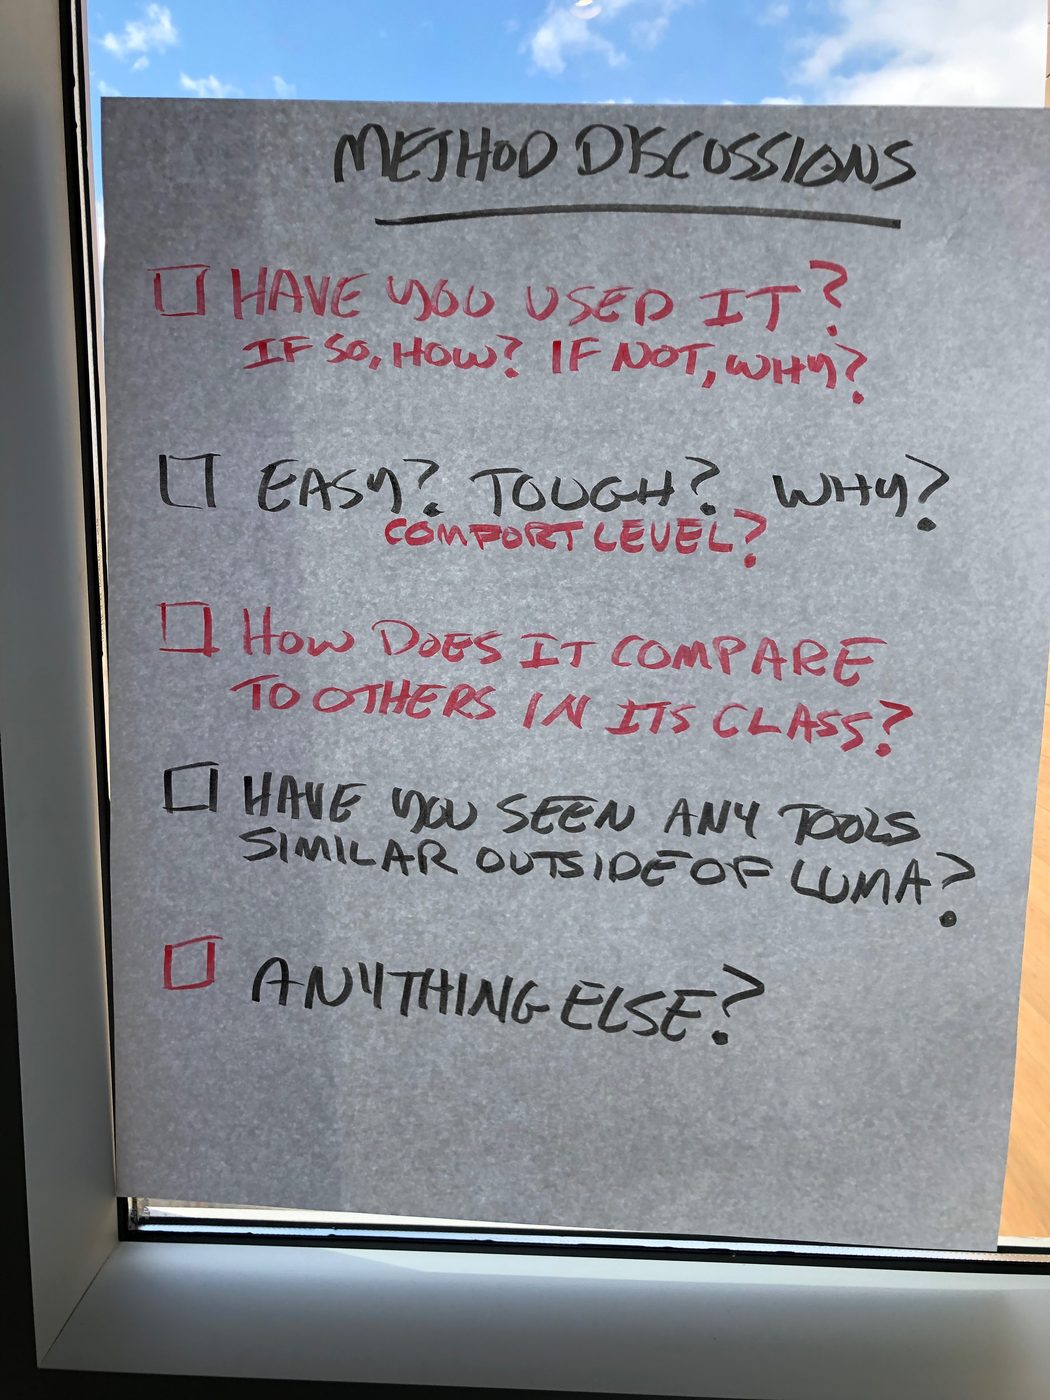 METHOD DISCUSSIONS
HAVE YOU USED IT?
IF SO, HOW? IF NOT, WHY?
EASY? TOUGH? WHY?
COMFORT LEVEL?
HOW DOES IT COMPARE
TO OTHERS IN ITS CLASS?
HAVE YOU SEEN ANY TOOLS
SIMILAR OUTSIDE OF LUMA?
ANYTHING ELSE?